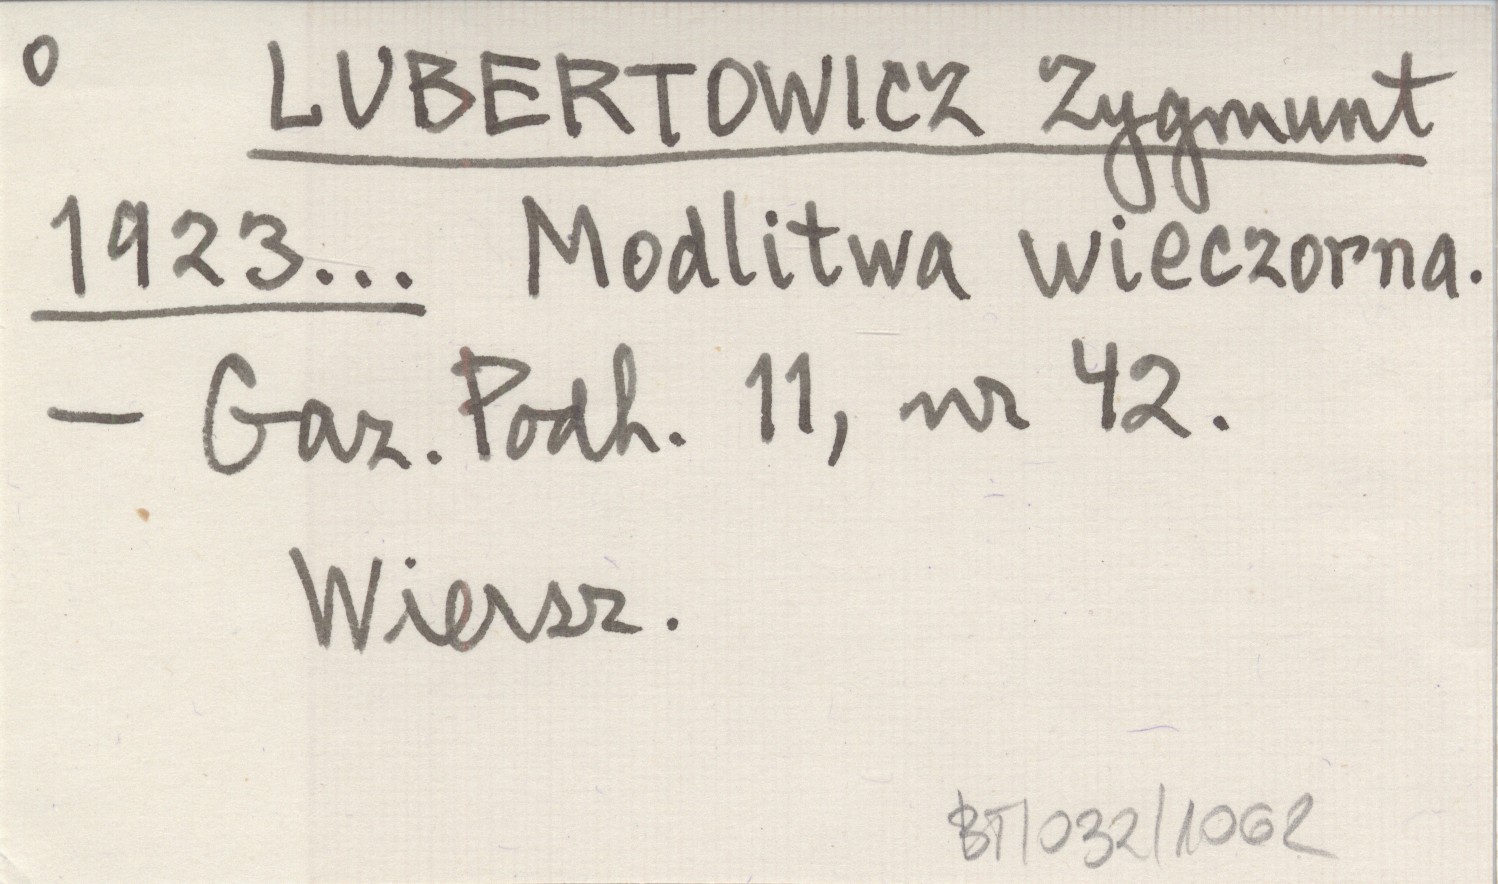 o LUBERTOWICZ Zygmunt
1923... Modlitwa wieczorna.
— Gaz. Podh. 11, nr 42.
Wiersz.
BT/032/1062